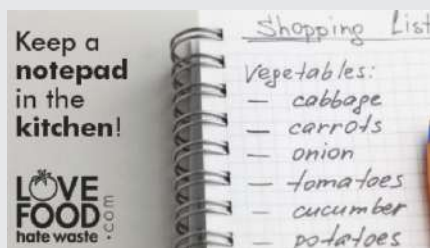 Keep a
notepad
in the
kitchen!
LOVE
FOOD
hate waste
.com
Shopping List
Vegetables:
– cabbage
– carrots
– onion
– tomatoes
– cucumber
– potatoes